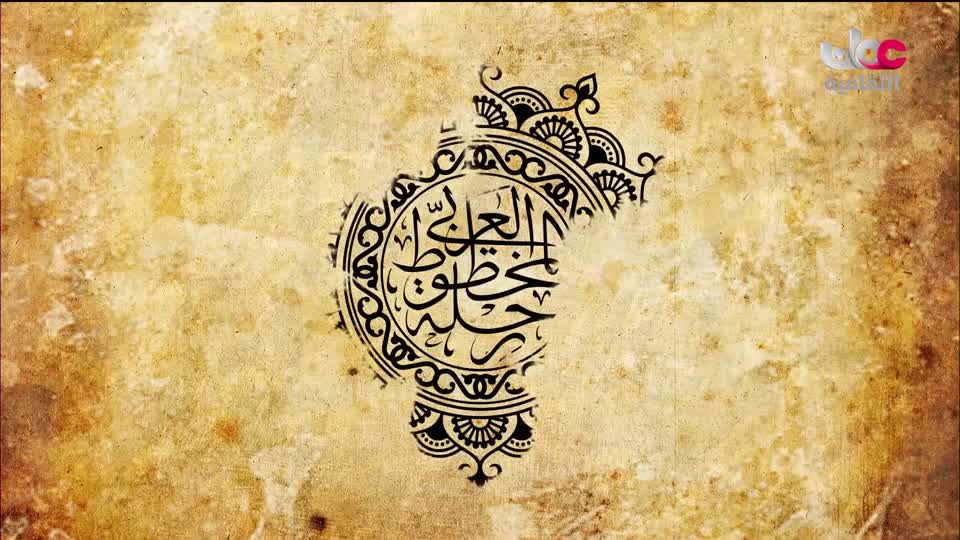 رحلة
المخطوط
العربي
عمان
الثقافية